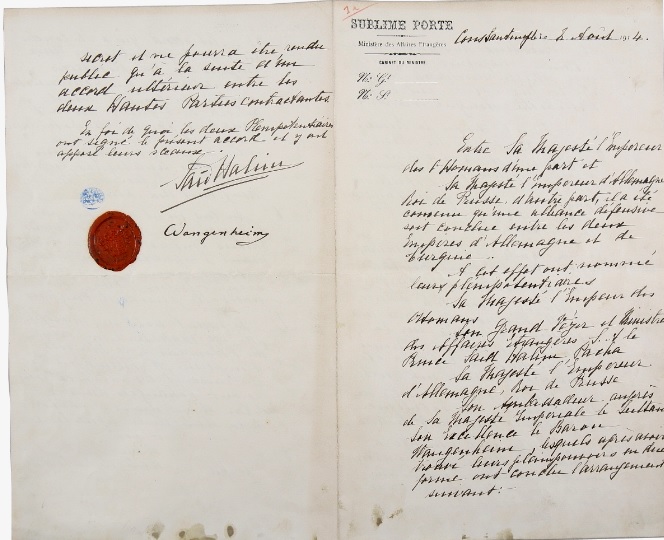 secret et ne pourra être rendu
public qu'à la suite d'un
accord ultérieur entre les
deux Hautes Parties contractantes
En foi de quoi les deux Plénipotentiaires
ont signé le présent accord et y ont
apposé leurs sceaux.
Saïd Halim
Wangenheim
SUBLIME PORTE
Ministère des Affaires Étrangères
CABINET DU MINISTRE
Constantinople 2 Août 1914.
N° G^l
N° S^l
Entre Sa Majesté l'Empereur
des Ottomans d'une part et
Sa Majesté l'Empereur d'Allemagne
Roi de Prusse d'autre part, il a été
convenu qu'une alliance défensive
soit conclue entre les deux
Empires d'Allemagne et de
Turquie.
A cet effet ont nommé
leurs plénipotentiaires
Sa Majesté l'Empereur des
Ottomans
Son Grand Vézir et Ministre
des Affaires étrangères S. A. le
Prince Saïd Halim Pacha
Sa Majesté l'Empereur
d'Allemagne, Roi de Prusse
Son Ambassadeur auprès
de Sa Majesté Impériale le Sultan
Son Excellence le Baron
Wangenheim, lesquels après avoir
trouvé leurs pleinpouvoirs en due
forme ont conclu l'arrangement
suivant:-